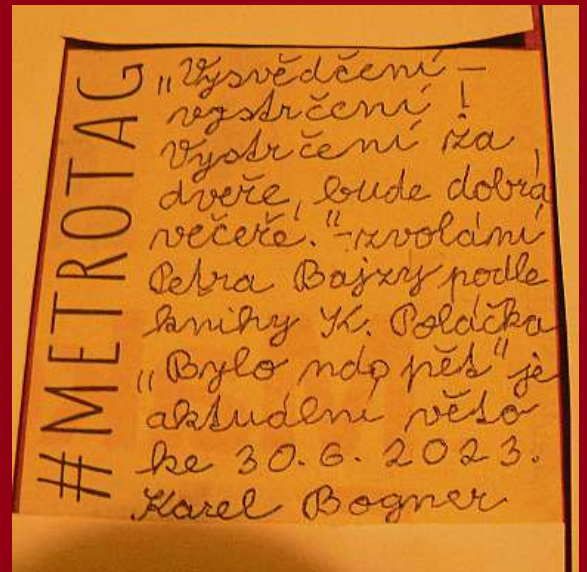 #METROTAG
„Vysvědčení –
vystrčení!
Vystrčení za
dveře, bude dobrá
večeře." – zvolání
Petra Bajzy podle
knihy K. Poláčka
„Bylo nás pět" je
aktuální
ke 30.6.2023.
Karel Bogner